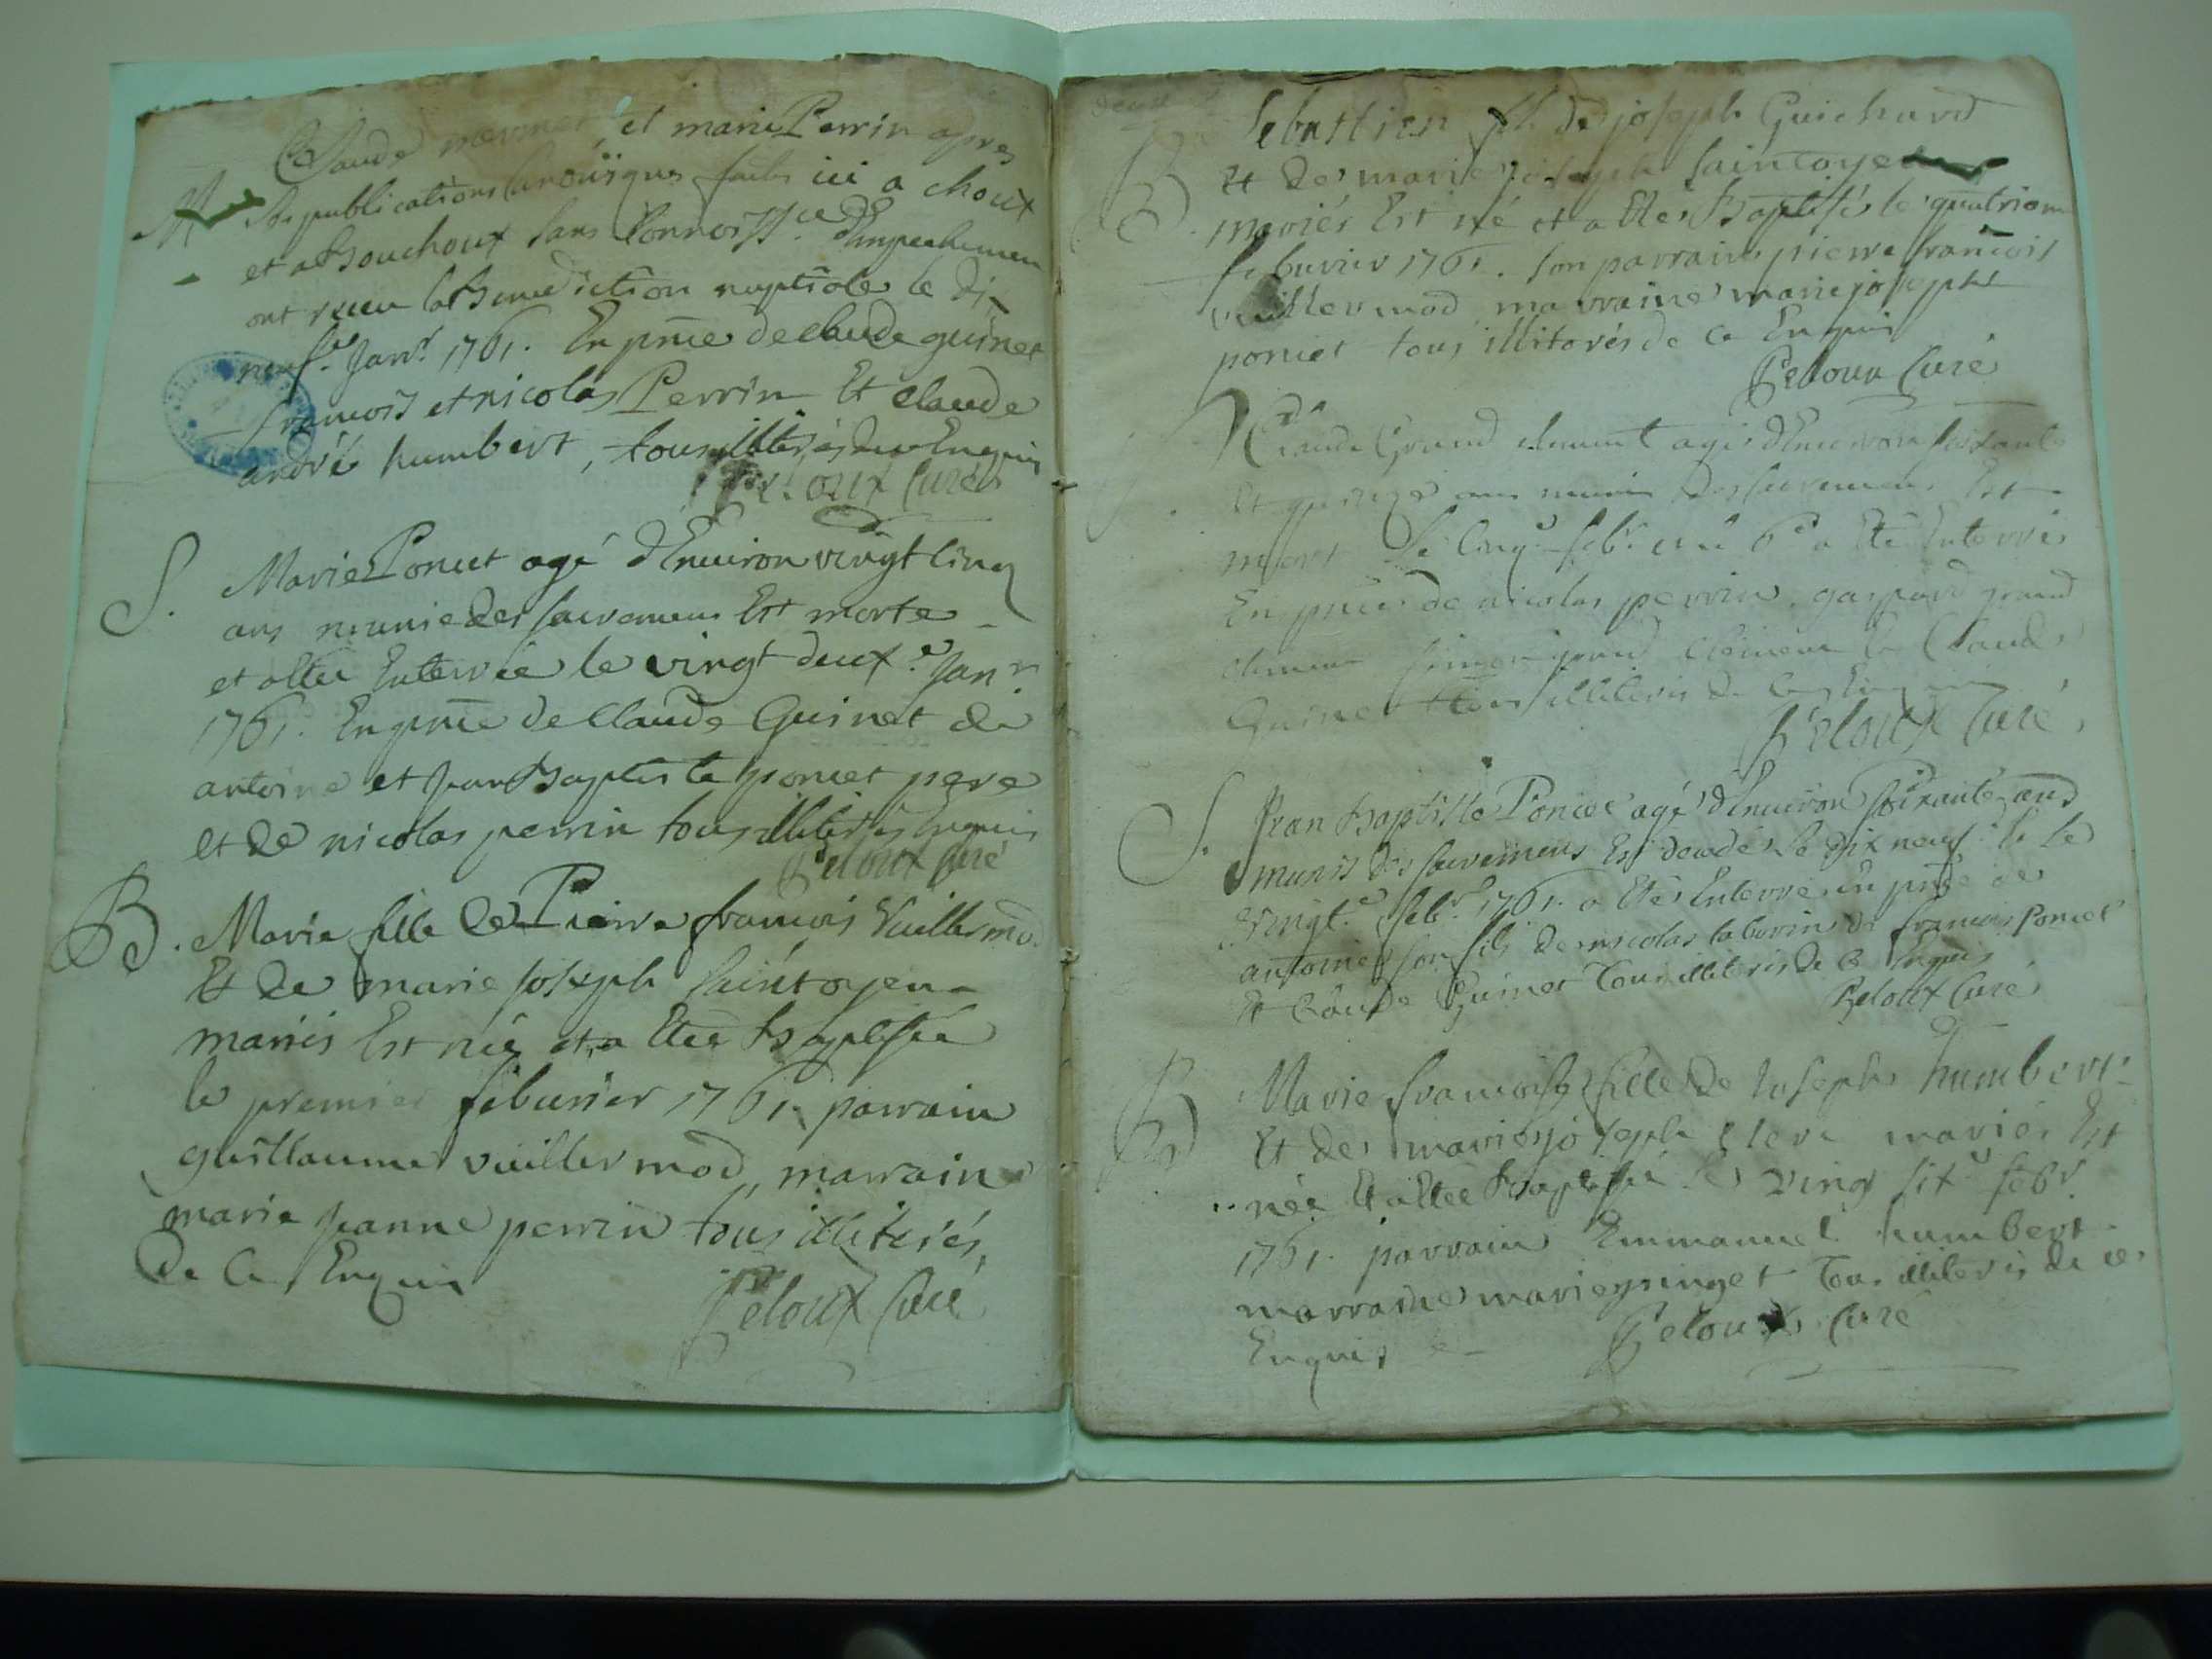 Claude mermet et marie Perrin apres
M les publications canoniques faites ici a choux
et a Bouchoux sans Connoiss.ce d'Empechemen
ont receu la Benediction nuptiale le di
neuf.e Janr 1761. En pnce de claude guinet
francois et nicolas Perrin Et claude
andré humbert, tous illiterés de ce Enquis
Peloux Curé
S. Marie Poncet agé d'Environ vingt cinq
ans munie des sacremens Est morte
et a Etée Enterrée le vingt deux.e Janr
1761. En pnce de claude Guinet de
antoine et jean Baptiste poncet pere
et de nicolas perrin tous illiterés Enquis
Peloux Curé
B. Marie fille de Pierre francois Vuillermod
Et de marie joseph saintoyen
mariés Est née et a Etée Baptisée
le premier feburier 1761. parrain
guillaume vuillermod, marraine
marie jeanne perrin tous illiterés,
De Ce Enquis
Peloux Curé
Sebastien fils de joseph Guichard
Et de marie joseph saintoyen
B. mariés Est né et a Etés Baptisés le quatriem
feburier 1761. son parrain pierre francois
vuillermod marraine marie josephe
poncet tous illiterés de ce Enquis
Peloux Curé
Claude Grand clement agé d'Environ soixante
S. Et quinze ans muni des sacremens Est
mort le cinq.e febr et le 6.e a Eté Enterré
En pnce de nicolas perrin, gaspard grand
clement simon grand clement Et Claude
Guinet tous illiterés de ce Enquis
Peloux Curé
S. Jean Baptiste Poncet agé d'Environ soixante ans
munis des sacremens Est decedé le dix neuf et le
vingt.e febr 1761. a Etés Enterré En pnce de
antoine son fils de nicolas de francois Poncet
Et Claude Guinet tous illiterés de ce Enquis
Peloux Curé
Marie francoise fille de Joseph humbert
B Et de marie joseph mariés Est
née Et a Etée Baptisée le ving six.e febr
1761. parrain Emmanuel humbert
marraine marie tous illiterés de ce
Enquis
Peloux Curé